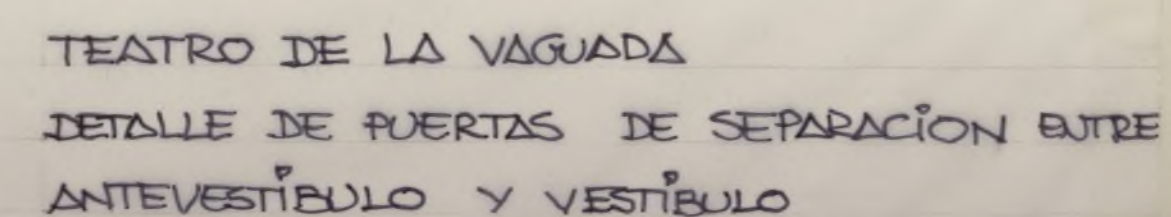 TEATRO DE LA VAGUADA
DETALLE DE PUERTAS DE SEPARACION ENTRE
ANTEVESTÍBULO Y VESTÍBULO